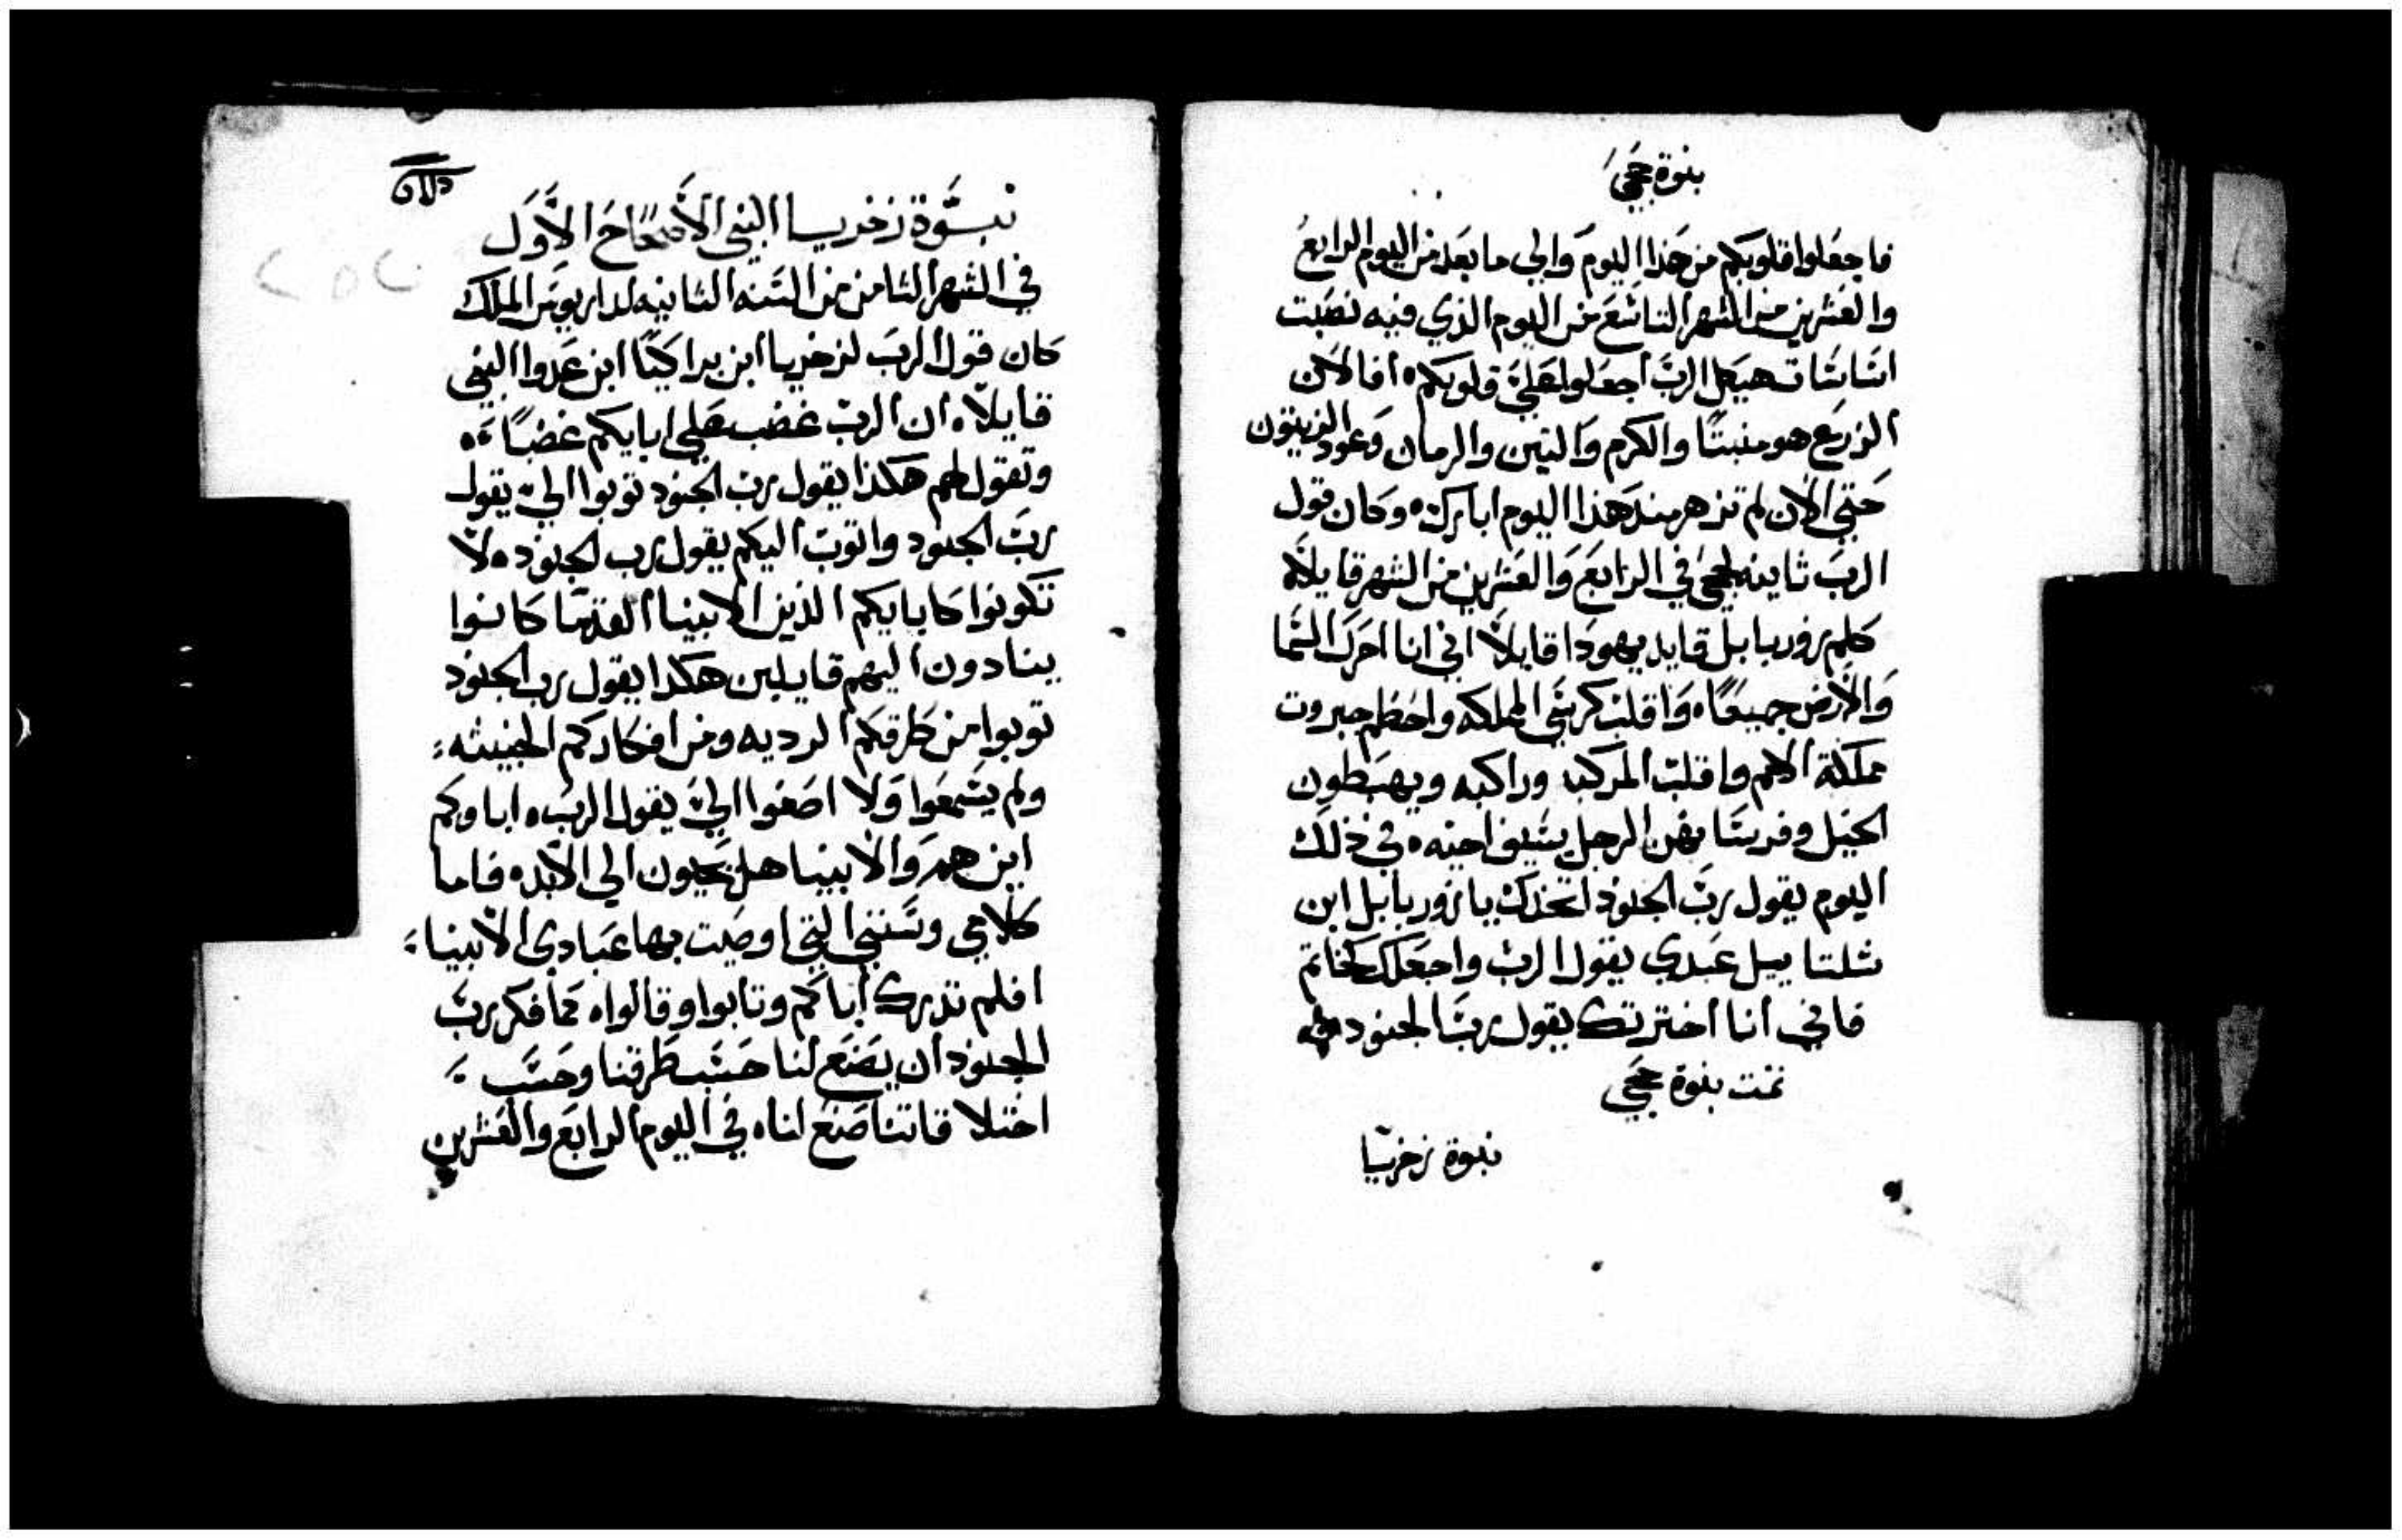 بنوة حجي
فاجعلوا قلوبكم من هذا اليوم والي ما بعد من اليوم الرابع
والعشرين من الشهر التاسع من اليوم الذي فيه نصبت
اساسات هيكل الرب اجعلوا علي قلوبكم افالان
الزرع هو منبتا والكرم والتين والرمان وعود الزيتون
حتي الان لم تزهر منذ هذا اليوم ابارك وكان قول
الرب ثانيه لحجي في الرابع والعشرين من الشهر قايلا
كلم زوربابل قايد يهودا قايلا اني انا احرك السما
والارض جميعا واقلب كرسي المملكه واحطم جبروت
مملكة الامم واقلب المركبه وراكبه ويهبطون
الخيل وفرسانهن الرجل بسيف اخيه في ذلك
اليوم يقول رب الجنود اتخذك يا زوربابل ابن
شلتاييل عبدي يقول الرب واجعلك كخاتم
فاني انا اخترتك يقول رب الجنود
تمت بنوة حجي
نبوة زخريا
نبوة زخريا النبي الاصحاح الاول
في الشهر الثامن من السنه الثانيه لداريوس الملك
كان قول الرب لزخريا ابن براكيا ابن عدوا النبي
قايلا ان الرب غضب علي ابايكم غضبا
وتقول لهم هكذا يقول رب الجنود توبوا الي يقول
رب الجنود واتوب اليكم يقول رب الجنود لا
تكونوا كابايكم الذين الانبيا القدما كانوا
ينادون اليهم قايلين هكذا يقول رب الجنود
توبوا من طرقكم الرديه ومن افكاركم الخبيثه
ولم يسمعوا ولا اصغوا الي يقول الرب اباوكم
اين هم والانبيا هل يحيون الي الابد فاما
كلامي وسنني التي اوصيت بها عبادي الانبيا
افلم تدرك اباكم وتابوا وقالوا كما فكر رب
الجنود ان يصنع لنا حسب طرقنا وحسب
اختلاقاتنا صنع لنا في اليوم الرابع والعشرين